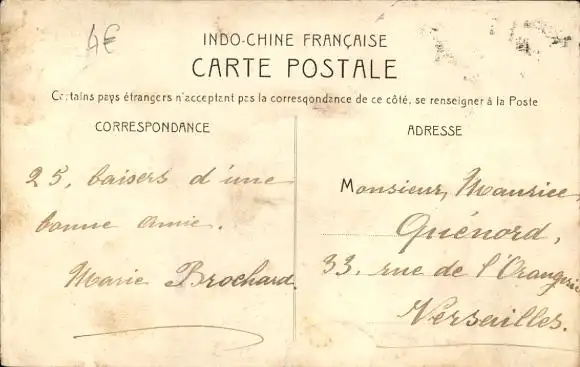 4€
INDO-CHINE FRANÇAISE
CARTE POSTALE
Certains pays étrangers n'acceptent pas la correspondance de ce côté, se renseigner à la Poste
CORRESPONDANCE
25, baisers d'une
bonne amie.
Marie Brochard.
ADRESSE
Monsieur, Maurice,
Quénord,
33. rue de l'Orangerie
Versailles.